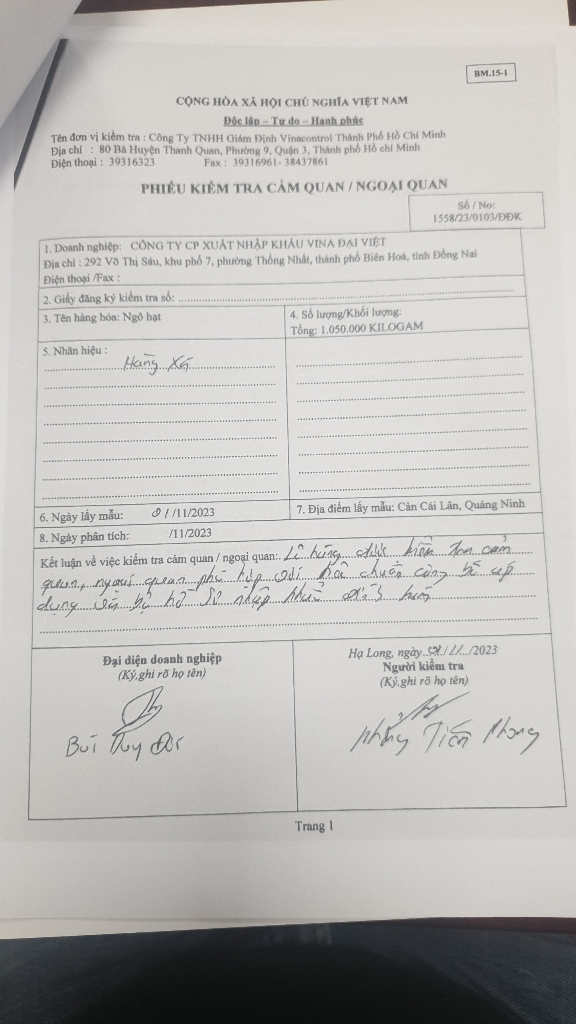 BM.15-1
CỘNG HÒA XÃ HỘI CHỦ NGHĨA VIỆT NAM
Độc lập – Tự do – Hạnh phúc
Tên đơn vị kiểm tra : Công Ty TNHH Giám Định Vinacontrol Thành Phố Hồ Chí Minh
Địa chỉ : 80 Bà Huyện Thanh Quan, Phường 9, Quận 3, Thành phố Hồ chí Minh
Điện thoại : 39316323 Fax : 39316961- 38437861
PHIẾU KIỂM TRA CẢM QUAN / NGOẠI QUAN
Số / No:
1558/23/0103/ĐĐK
1. Doanh nghiệp: CÔNG TY CP XUẤT NHẬP KHẨU VINA ĐẠI VIỆT
Địa chỉ : 292 Võ Thị Sáu, khu phố 7, phường Thống Nhất, thành phố Biên Hoà, tỉnh Đồng Nai
Điện thoại /Fax :
2. Giấy đăng ký kiểm tra số:
3. Tên hàng hóa: Ngô hạt
4. Số lượng/Khối lượng:
Tổng: 1.050.000 KILOGAM
5. Nhãn hiệu :
Hàng Xá
6. Ngày lấy mẫu: 01/11/2023
7. Địa điểm lấy mẫu: Cản Cái Lân, Quảng Ninh
8. Ngày phân tích: /11/2023
Kết luận về việc kiểm tra cảm quan / ngoại quan: Lô hàng được kiểm tra cảm
quan, ngoại quan phù hợp với chuẩn công bố áp
dụng và bộ hồ sơ nhập khẩu
Đại diện doanh nghiệp
(Ký,ghi rõ họ tên)
Hạ Long, ngày /11/2023
Người kiểm tra
(Ký,ghi rõ họ tên)
Bùi Duy
Tiến Phong
Trang 1